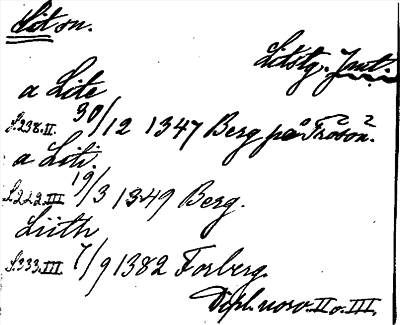 Lit sn.
Litstg. Jmtl.
a Lite
S.238.II. 30/12 1347 Berg på Frösön.
a Liti.
S.222.III 19/3 1349 Berg.
Liith
S.333.III. 7/9 1382 Forberg.
Dipl. norv. II o. III.